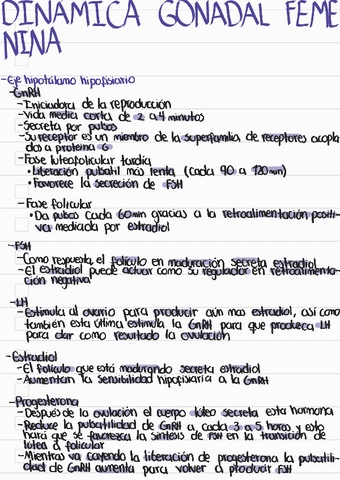 DINAMICA GONADAL FEME
NINA
-Eje hipotálamo hipofisiario
-GnRH
-Iniciadora de la reproducción
-Vida media corta de 2 a 4 minutos
-Secreta por pulsos
-Su receptor es un miembro de la superfamilia de receptores acopla
dos a proteina G
-Fase luteofolicular tardia
•Liberación pulsatil más lenta (cada 90 a 120 min)
•Favorece la secreción de FSH
-Fase folicular
•Da pulsos cada 60 min gracias a la retroalimentación positi-
va mediada por estradiol
-FSH
-Como respuesta, el folículo en maduración secreta estradiol
-El estradiol puede actuar como su regulador en retroalimenta-
ción negativa
-LH
-Estimula al ovario para producir aún mas estradiol, así como
también esta última estimula la GnRH para que produzca LH
para dar como resultado la ovulación
-Estradiol
-El folículo que está madurando secreta estradiol
-Aumentan la sensibilidad hipofisiaria a la GnRH
-Progesterona
-Después de la ovulación el cuerpo lúteo secreta esta hormona
-Reduce la pulsatilidad de GnRH a cada 3 a 5 horas y esto
hará que se favorezca la síntesis de FSH en la transición de
lútea a folicular
-Mientras va cayendo la liberación de progesterona la pulsatili-
dad de GnRH aumenta para volver a producir FSH